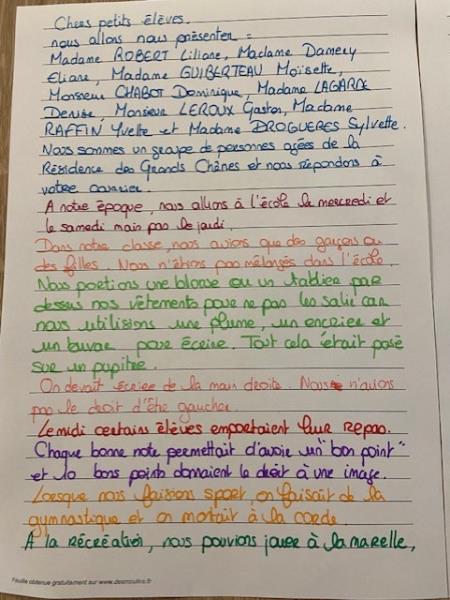 Chers petits élèves.
nous allons nous présenter :
Madame ROBERT Liliane, Madame Damery
Eliane, Madame GUIBERTEAU Moïsette,
Monsieur CHABOT Dominique, Madame LAGARDE
Denise, Monsieur LEROUX Gaston, Madame
RAFFIN Yvette et Madame DROGUERES Sylvette.
Nous sommes un groupe de personnes agées de la
Résidence des Grands Chênes et nous répondons à
votre courrier.
A notre époque, nous allions à l'école le mercredi et
le samedi mais pas le jeudi.
Dans notre classe, nous avions que des garçons ou
des filles. Nous n'étions pas mélangés dans l'école.
Nous portions une blouse ou un tablier par
dessus nos vêtements pour ne pas les salir car
nous utilisions une plume, un encrier et
un buvar pour écrire. Tout cela était posé
sur un pupitre.
On devait écrire de la main droite. Nous n'avions
pas le droit d'être gaucher.
Le midi certains élèves emportaient leur repas.
Chaque bonne note permettait d'avoir un "bon point"
et 10 bons points donnaient le droit à une image.
Lorsque nous faisions sport, on faisait de la
gymnastique et on montait à la corde.
A la récréation, nous pouvions jouer à la marelle,
Feuille obtenue gratuitement sur www.desmoulins.fr